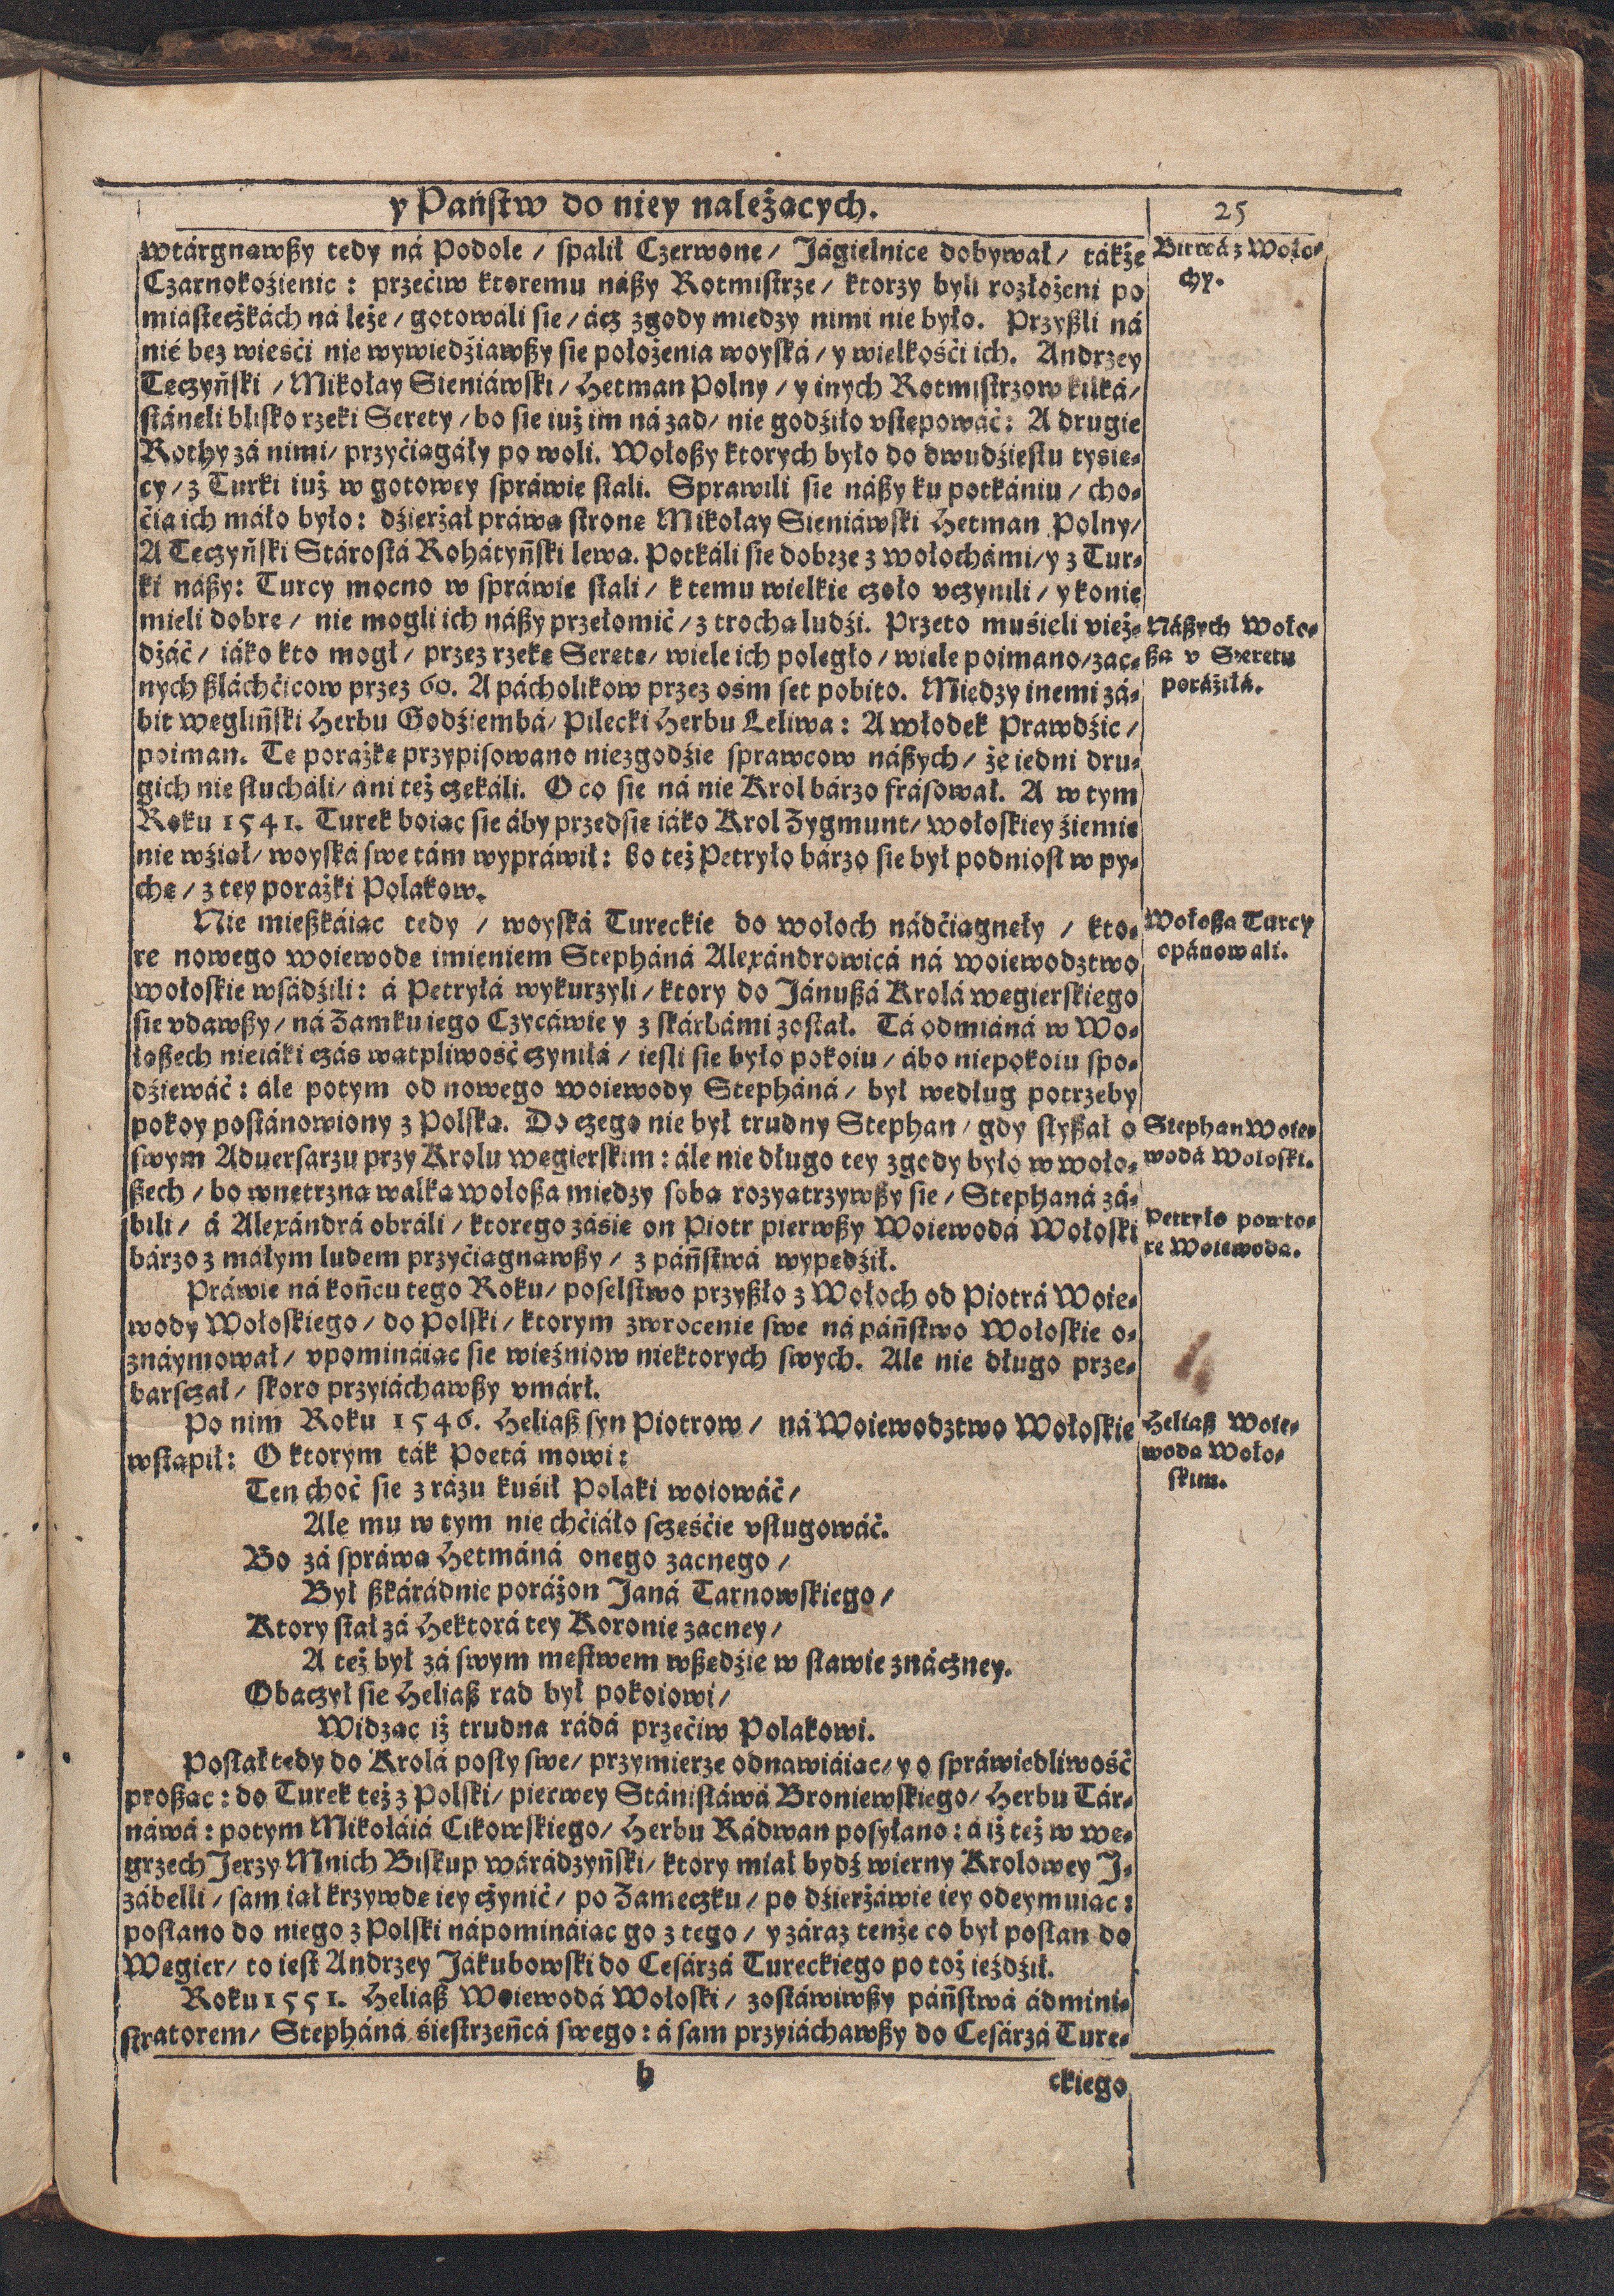 y Pańſtw do niey należących.
25
wtárgnąwßy tedy ná Podole / ſpalił Czerwone / Jágielnice dobywał / tákże
Czarnokoźienic : przećiw ktoremu náßy Rotmiſtrze / ktorzy byli rozłożeni po
miaſteczkách ná leże / gotowali ſie / ácz zgody miedzy nimi nie było. Przyßli ná
nié bez wieśći nie wywiedźiawßy ſie położenia woyſká / y wielkośći ich. Andrzey
Tęczyńſki / Mikołay Sieniáwſki / Hetman Polny / y inych Rotmiſtrzow kilká /
ſtáneli bliſko rzeki Serety / bo ſie iuż im ná zad / nie godźiło vſtępowáć : A drugie
Rothy zá nimi / przyćiągáły po woli. Wołoßy ktorych było do dwudźieſtu tyśię⸗
cy / z Turki iuż w gotowey ſpráwie ſtali. Sprawili ſie náßy ku potkániu / cho⸗
ćia ich máło było : dźierżał práwą ſtronę Mikołay Sieniáwſki Hetman Polny /
A Tęczyńſki Stároſtá Rohátyńſki lewą. Potkáli ſie dobrze z Wołochámi / y z Tur⸗
ki náßy : Turcy mocno w ſpráwie ſtali / k temu wielkie czoło vczynili / y konie
mieli dobre / nie mogli ich náßy przełomić / z trochą ludźi. Przeto muśieli vież⸗
dżáć / iáko kto mogł / przez rzekę Seretę / wiele ich poległo / wiele poimano / zac⸗
nych ßláchćicow przez 60. A pácholikow przez ośm ſet pobito. Miedzy inemi zá⸗
bit Węgliński Herbu Godźiembá / Pilecki Herbu Leliwa : A Włodek Prawdźic /
poiman. Tę porażkę przypiſowano niezgodźie ſprawcow náßych / że iedni dru⸗
gich nie ſłucháli / áni też czekáli. O co ſie ná nie Krol bárzo fráſował. A w tym
Roku 1541. Turek boiąc ſie áby przedſie iáko Krol Zygmunt / Wołoſkiey źiemie
nie wźiął / woyſká ſwe tám wypráwił : bo też Petryło bárzo ſie był podnioſł w py⸗
chę / z tey porażki Polakow.
Nie mießkáiąc tedy / woyſká Tureckie do Wołoch nádćiągnęły / kto⸗
re nowego woiewodę imieniem Stepháná Alexándrowicá ná woiewodztwo
wołoſkie wſádźili : á Petryłá wykurzyli / ktory do Jánußá Krolá węgierſkiego
ſie vdawßy / ná Zamku iego Czycáwie y z ſkárbámi zoſtał. Tá odmiáná w Wo⸗
łoßech nieiáki czás wątpliwość czyniłá / ieſli ſie było pokoiu / ábo niepokoiu ſpo⸗
dźiewáć : ále potym od nowego woiewody Stepháná / był według potrzeby
pokoy poſtánowiony z Polſką. Do czego nie był trudny Stephan / gdy ſłyßał o
ſwym Aduerſarzu przy Krolu węgierſkim : ále nie długo tey zgody było w Woło⸗
ßech / bo wnętrzna walka Wołoßa miedzy ſobą rozyatrzywßy ſie / Stephaná zá⸗
bili / á Alexándrá obráli / ktorego záśie on Piotr pierwßy Woiewodá Wołoſki
bárzo z máłym ludem przyćiągnąwßy / z páńſtwá wypędźił.
Práwie ná końcu tego Roku / poſelſtwo przyßło z Wołoch od Piotrá Woie⸗
wody Wołoſkiego / do Polſki / ktorym zwrocenie ſwe ná páńſtwo Wołoſkie o⸗
znáymował / vpomináiąc ſie więźniow niektorych ſwych. Ale nie długo prze⸗
barſczał / ſkoro przyiáchawßy vmárł.
Po nim Roku 1546. Heliaß ſyn Piotrow / ná Woiewodztwo Wołoſkie
wſtąpił : O ktorym ták Poetá mowi :
Ten choć ſie z rázu kuśił Polaki woiowáć /
Ale mu w tym nie chćiáło ſczęśćie vſługowáć.
Bo zá ſpráwą Hetmáná onego zacnego /
Był ßkárádnie poráżon Janá Tarnowſkiego /
Ktory ſtał zá Hektorá tey Koronie zacney /
A też był zá ſwym męſtwem wßędźie w ſławie znáczney.
Obaczył ſie Heliaß rad był pokoiowi /
Widząc iż trudna rádá przećiw Polakowi.
Poſłał tedy do Krolá poſły ſwe / przymierze odnawiáiąc / y o ſpráwiedliwość
proßąc : do Turek też z Polſki / pierwey Stániſłáwá Broniewſkiego / Herbu Tár⸗
náwá : potym Mikoláiá Cikowſkiego / Herbu Rádwan poſyłano : á iż też w Wę⸗
grzech Jerzy Mnich Biſkup Wárádzyńſki / ktory miał bydź wierny Krolowey J⸗
zábelli / ſam iął krzywdę iey czynić / po Zameczku / po dźierżáwie iey odeymuiąc :
poſłano do niego z Polſki nápomináiąc go z tego / y záraz tenże co był poſłan do
Węgier / to ieſt Andrzey Jákubowſki do Ceſárzá Tureckiego po toż ieźdźił.
Roku 1551. Heliaß Woiewodá Wołoſki / zoſtáwiwßy páńſtwá ádmini⸗
ſtratorem / Stepháná śieſtrzeńcá ſwego : á ſam przyiáchawßy do Ceſárzá Ture⸗
b
ckiego
Bitwá z Woło⸗
chy.
Náßych Woło⸗
ßa v Seretu
poráźiłá.
Wołoßa Turcy
opánowali.
Stephan Woie⸗
wodá Wołoſki.
Petryło powto⸗
re Woiewodą.
Heliaß Woie⸗
wodą Woło⸗
ſkim.